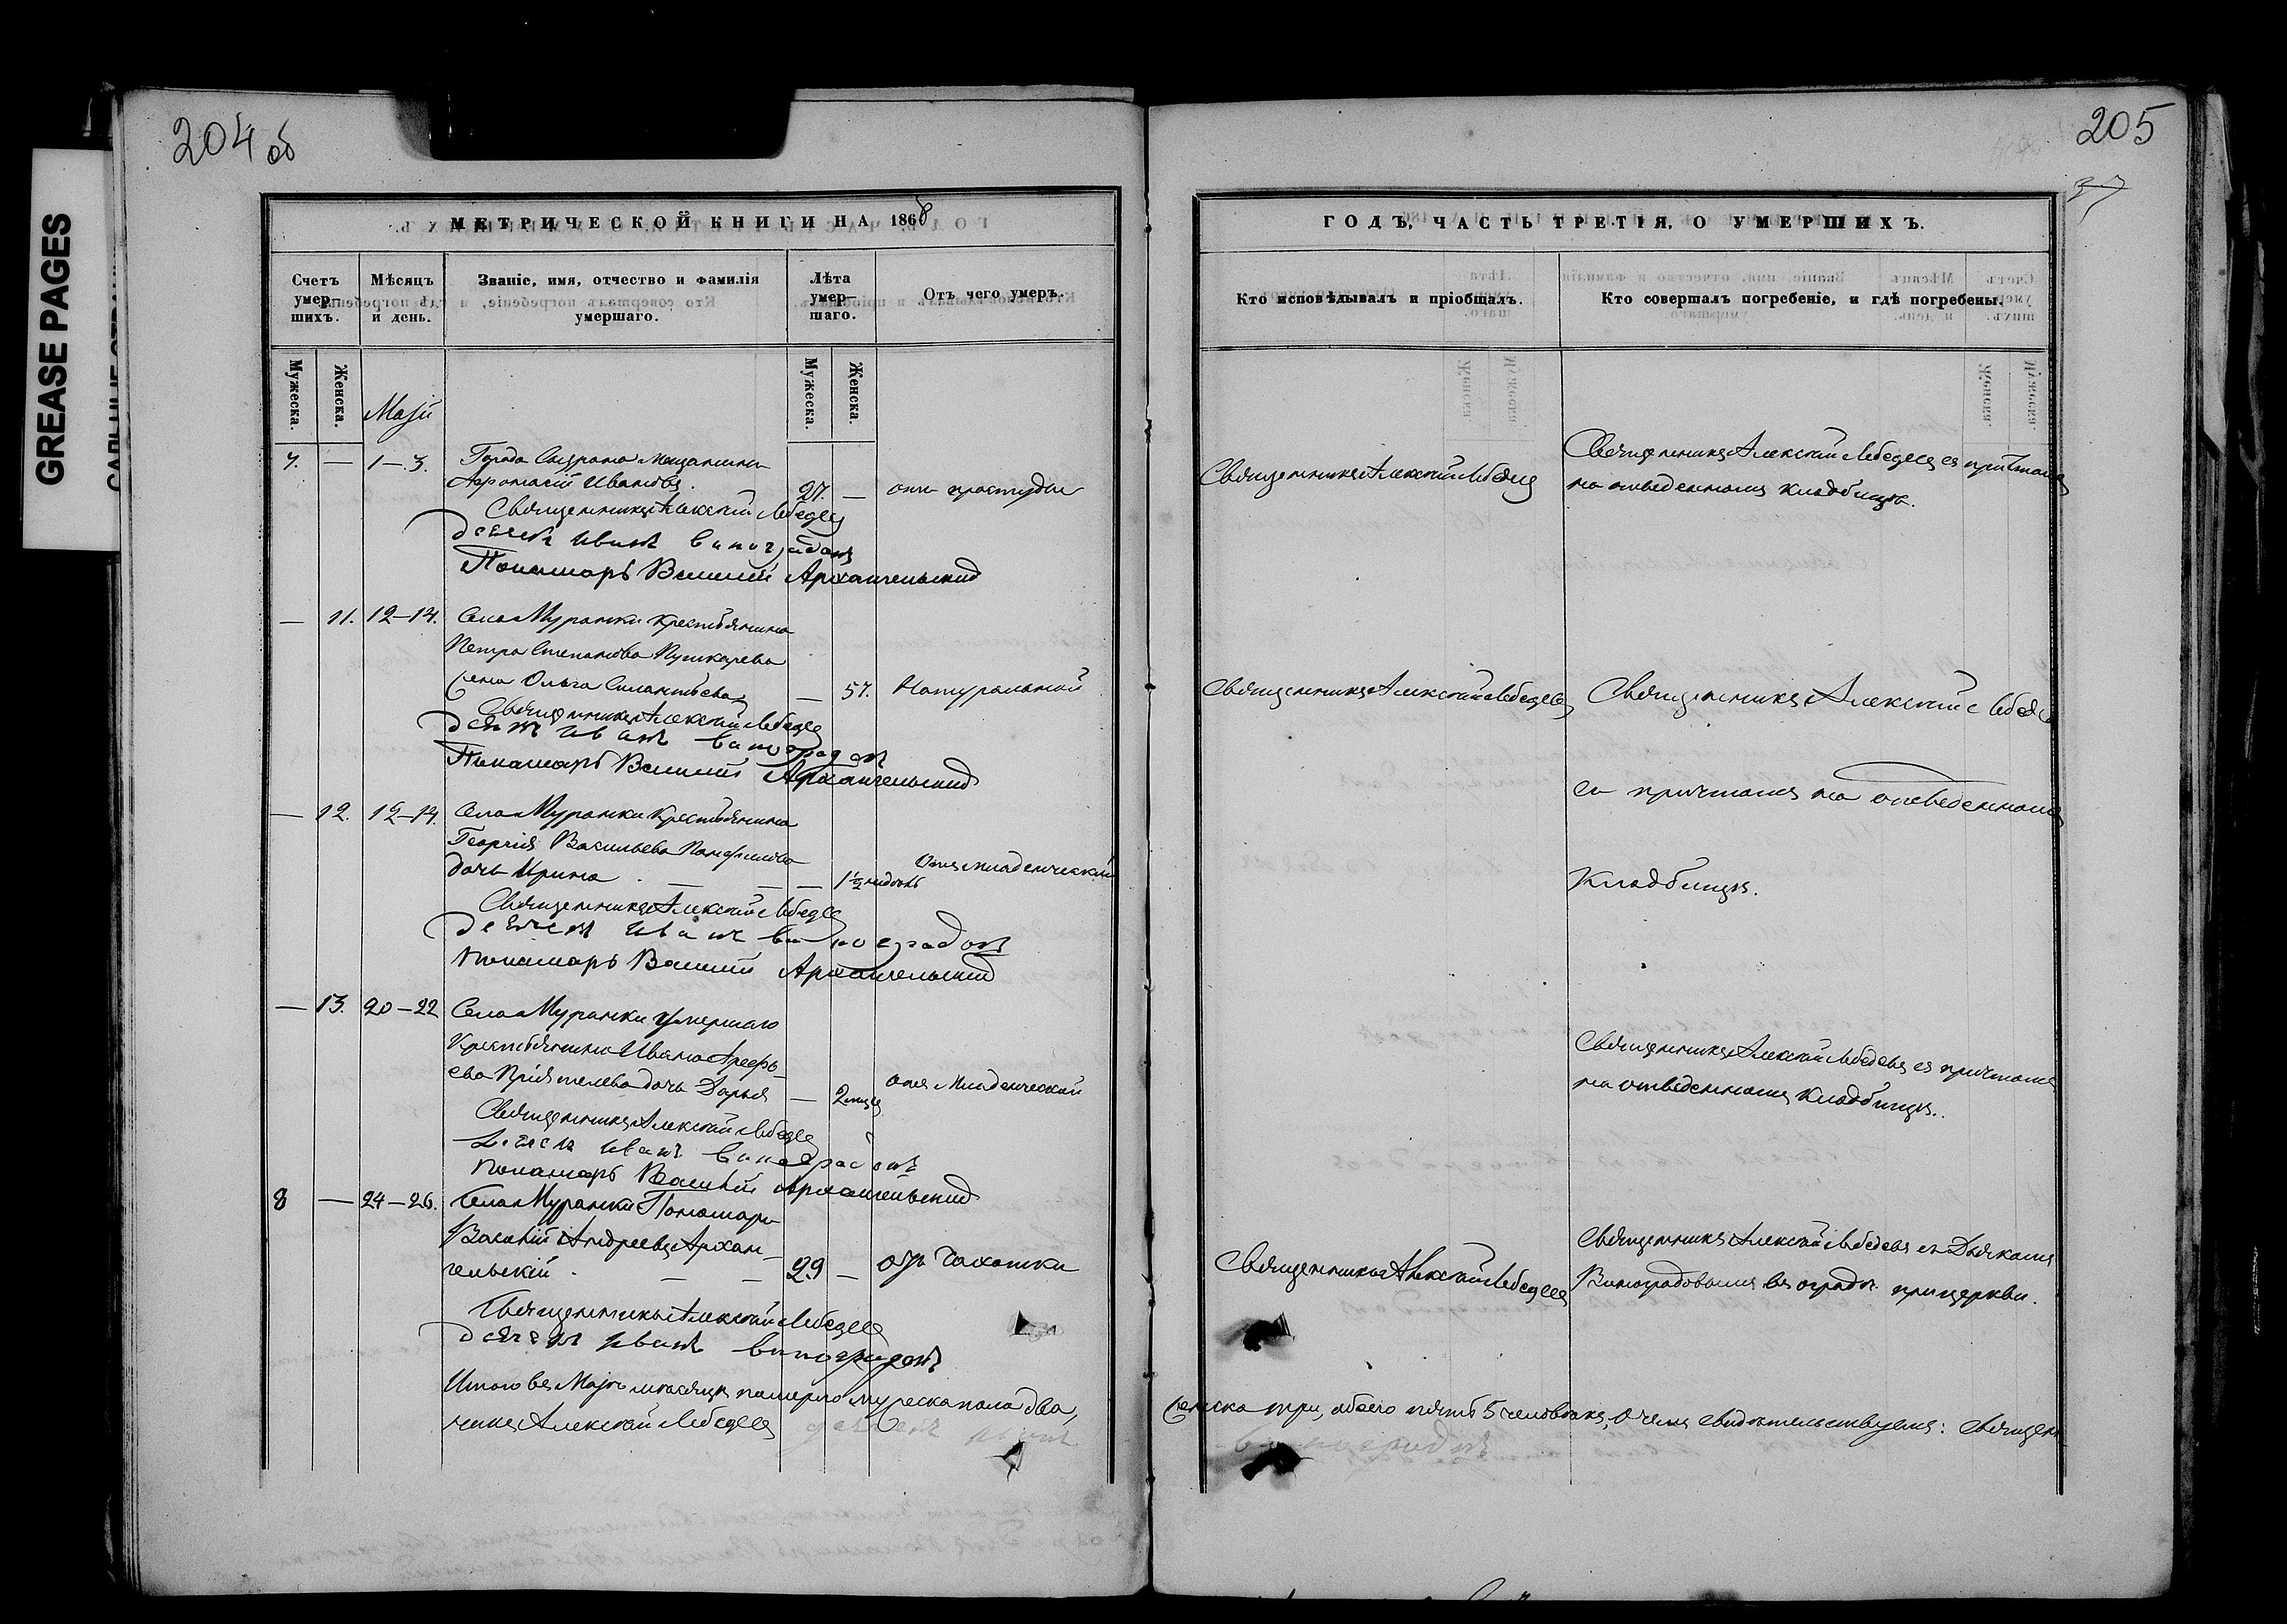 204 об
МЕТРИЧЕСКОЙ КНИГИ НА 1868
Счетъ умер-шихъ.
Мѣсяцъ и день.
Званіе, имя, отчество и фамилія умершаго.
Лѣта умер-шаго.
Отъ чего умеръ.
Мужеска.
Женска.
Мужеска.
Женска.
Маіи
7. — 1—3. Города Сызрана мещанинъ
Афонасій Ивановъ. 27. — отъ простуды
Священникъ Алексѣй Лебедевъ
Дьячекъ Иванъ Виноградовъ
Понамарь Василій Архангельскій
— 11. 12—14. Села Муранки крестьянина
Петра Степанова Пушкарева
жена Ольга Силантьева — 57. Натуральной
Священникъ Алексѣй Лебедевъ
Дьячекъ Иванъ Виноградовъ
Понамарь Василій Архангельскій
— 12. 12—14. Села Муранки крестьянина
Георгія Васильева Панфилова
дочь Ирина — — — 1½ недѣль Отъ младенческой
Священникъ Алексѣй Лебедевъ
Дьячекъ Иванъ Виноградовъ
Понамарь Василій Архангельскій
— 13. 20—22 Села Муранки умершаго
Крестьянина Ивана Арефь-
ева Пріятелева дочь Дарья — 2 мѣся отъ Младенческой
Священникъ Алексѣй Лебедевъ
Дьячекъ Иванъ Виноградовъ
Понамарь Василій Архангельскій
8 — 24—26. Села Муранки Пономарь
Василій Андреевъ Архан-
гельскій. — — 29 — отъ Чахотки
Священникъ Алексѣй Лебедевъ
Дьячекъ Иванъ Виноградовъ
Итого въ Маѣ мѣсяцѣ померло мужеска пола два,
никъ Алексѣй Лебедевъ дьячекъ Иванъ
205
37
ГОДЪ, ЧАСТЬ ТРЕТІЯ, О УМЕРШИХЪ.
Кто исповѣдывалъ и пріобщалъ.
Кто совершалъ погребеніе, и гдѣ погребены.
Священникъ Алексѣй Лебедевъ
Священникъ Алексѣй Лебедевъ съ причтомъ
на отведенномъ кладбищѣ.
Священникъ Алексѣй Лебедевъ
Священникъ Алексѣй Лебедевъ
съ причтомъ на отведенномъ
Кладбищѣ.
Священникъ Алексѣй Лебедевъ съ причтомъ
на отведенномъ Кладбищѣ.
Священникъ Алексѣй Лебедевъ
Священникъ Алексѣй Лебедевъ съ Дьячкомъ
Виноградовымъ въ оградѣ при церкви.
женска три, обоего пять 5 человѣкъ, О чемъ свидѣтельствуемъ: Священ-
Виноградовъ
GREASE PAGES